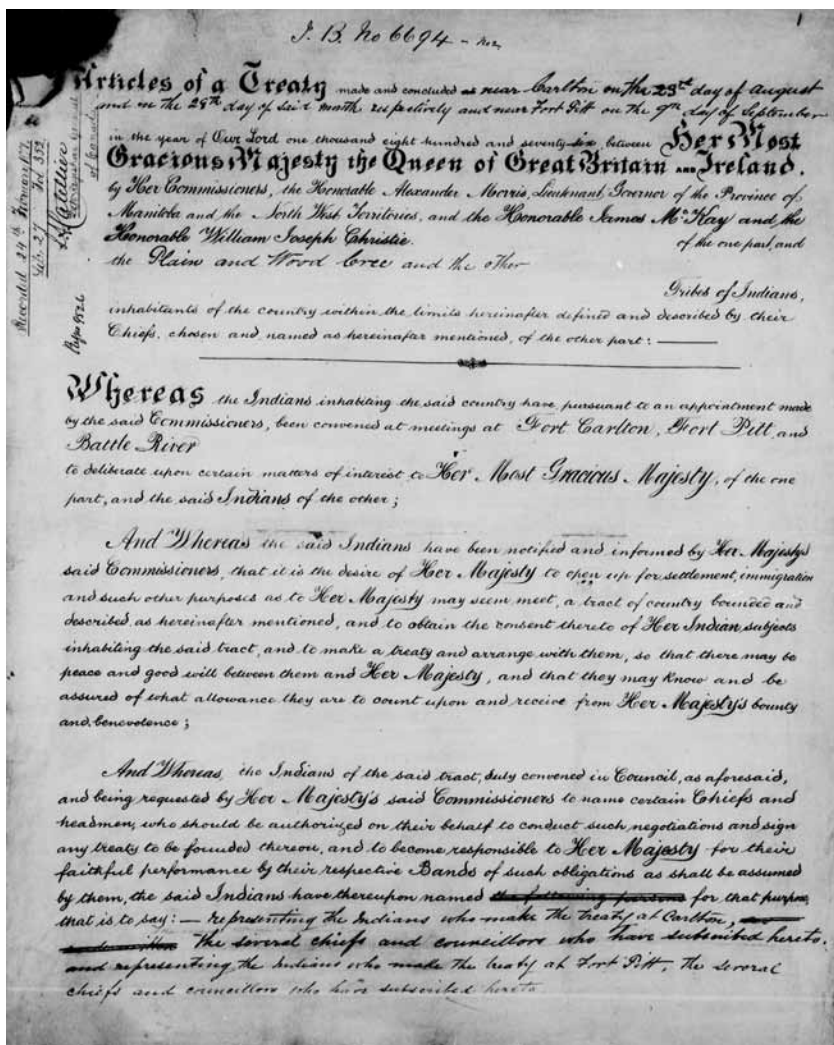 J. B. No 6694
1
Articles of a Treaty made and concluded near Carlton on the 23rd day of August
and on the 28th day of said month respectively and near Fort Pitt on the 9th day of September
in the year of Our Lord one thousand eight hundred and seventy-six between Her Most
Gracious Majesty the Queen of Great Britain and Ireland.
by Her Commissioners, the Honorable Alexander Morris, Lieutenant Governor of the Province of
Manitoba and the North West Territories, and the Honorable James McKay and the
Honorable William Joseph Christie.
of the one part, and
the Plain and Wood Cree and the other
Tribes of Indians,
inhabitants of the country within the limits hereinafter defined and described by their
Chiefs, chosen and named as hereinafter mentioned, of the other part:
Whereas the Indians inhabiting the said country have, pursuant to an appointment made
by the said Commissioners, been convened at meetings at Fort Carlton, Fort Pitt, and
Battle River
to deliberate upon certain matters of interest to Her Most Gracious Majesty, of the one
part, and the said Indians of the other;
And Whereas the said Indians have been notified and informed by Her Majesty's
said Commissioners, that it is the desire of Her Majesty to open up for settlement, immigration
and such other purposes as to Her Majesty may seem meet, a tract of country bounded and
described, as hereinafter mentioned, and to obtain the consent thereto of Her Indian subjects
inhabiting the said tract, and to make a treaty and arrange with them, so that there may be
peace and good will between them and Her Majesty, and that they may know and be
assured of what allowance they are to count upon and receive from Her Majesty's bounty
and benevolence;
And Whereas, the Indians of the said tract, duly convened in Council, as aforesaid,
and being requested by Her Majesty's said Commissioners to name certain Chiefs and
headmen, who should be authorized on their behalf to conduct such negotiations and sign
any treaty to be founded thereon, and to become responsible to Her Majesty for their
faithful performance by their respective Bands of such obligations as shall be assumed
by them, the said Indians have thereupon named the following persons for that purpose,
that is to say: — representing the Indians who make the treaty at Carlton,
the several chiefs and councillors who have subscribed hereto.
and representing the Indians who made the treaty at Fort Pitt, the several
chiefs and councillors who have subscribed hereto
Recorded 24th
Lib. 27 Fol 352
of Canada